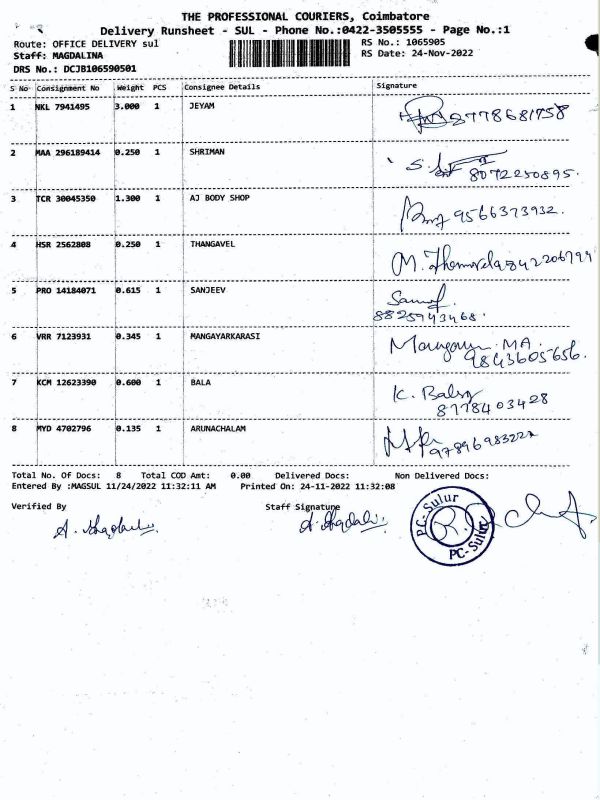 THE PROFESSIONAL COURIERS, Coimbatore
Delivery Runsheet - SUL - Phone No.:0422-3505555 - Page No.:1
Route: OFFICE DELIVERY sul
RS No.: 1065905
Staff: MAGDALINA
RS Date: 24-Nov-2022
DRS No.: DCJB106590501
S No Consignment No Weight PCS Consignee Details Signature
1 NKL 7941495 3.000 1 JEYAM
2 MAA 296189414 0.250 1 SHRIMAN
8072250895.
3 TCR 30045350 1.300 1 AJ BODY SHOP 9566373932.
4 HSR 2562808 0.250 1 THANGAVEL
5 PRO 14184071 0.615 1 SANJEEV
8825943468.
6 VRR 7123931 0.345 1 MANGAYARKARASI MA.
9843605656.
7 KCM 12623390 0.600 1 BALA K. Bala
8778403428
8 MYD 4702796 0.135 1 ARUNACHALAM
Total No. Of Docs: 8 Total COD Amt: 0.00 Delivered Docs: Non Delivered Docs:
Entered By :MAGSUL 11/24/2022 11:32:11 AM Printed On: 24-11-2022 11:32:08
Verified By Staff Signature
PC-Sulur
PC-Sulur